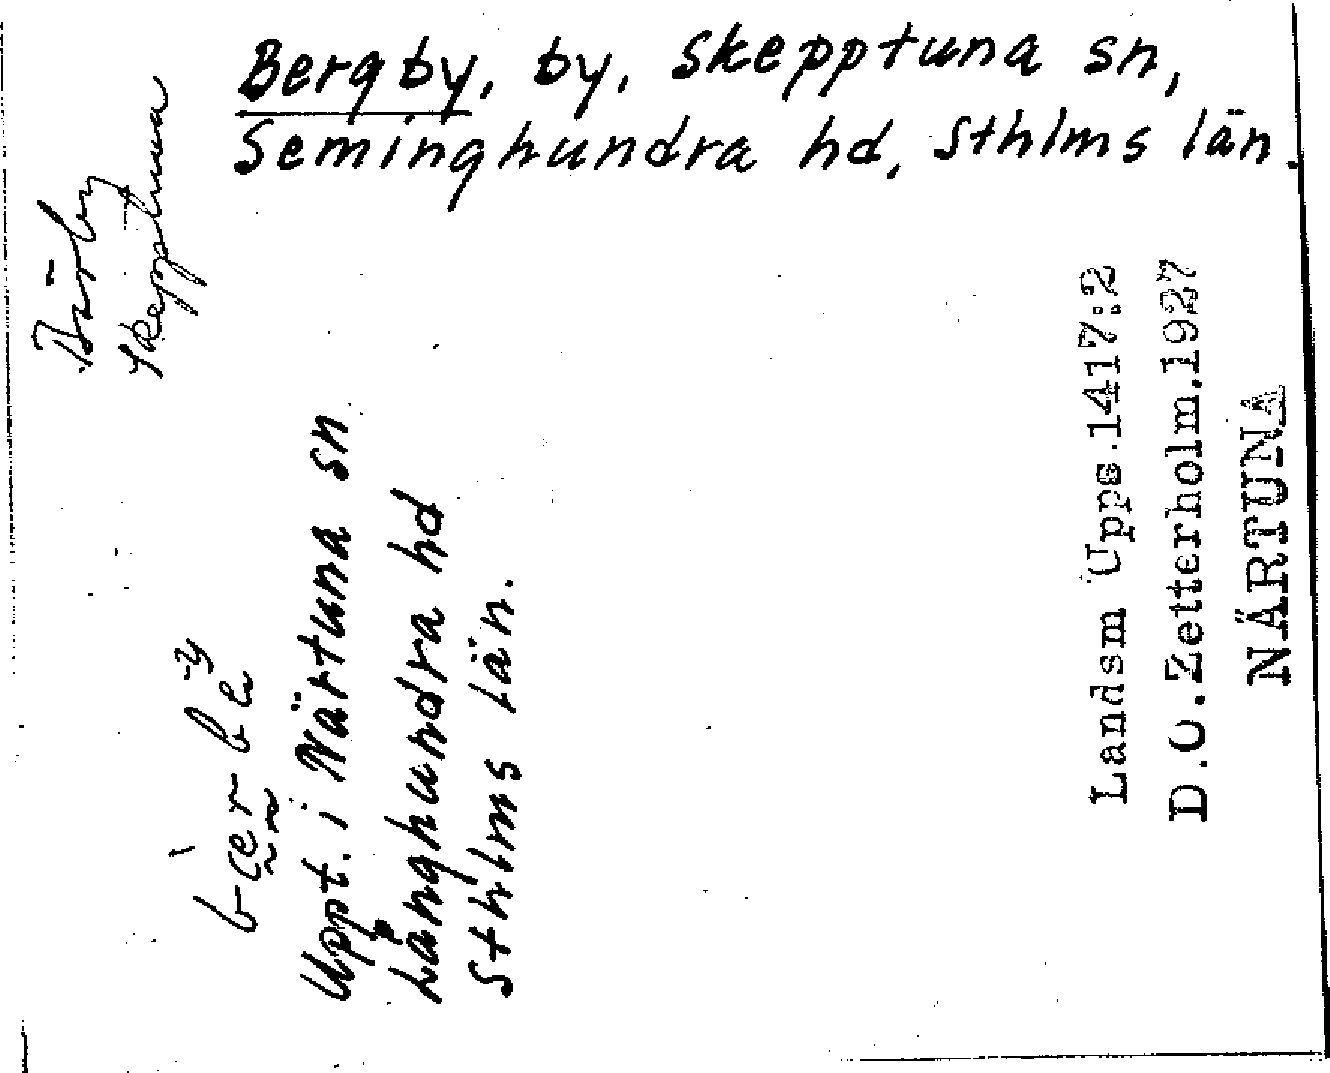 Bergby, by, Skepptuna sn,
Seminghundra hd, Sthlms län.
Skepptuna
Uppt. i Närtuna sn
Långhundra hd
Sthlms län.
Landsm Upps.1417:2
D.O.Zetterholm.1927
NÄRTUNA